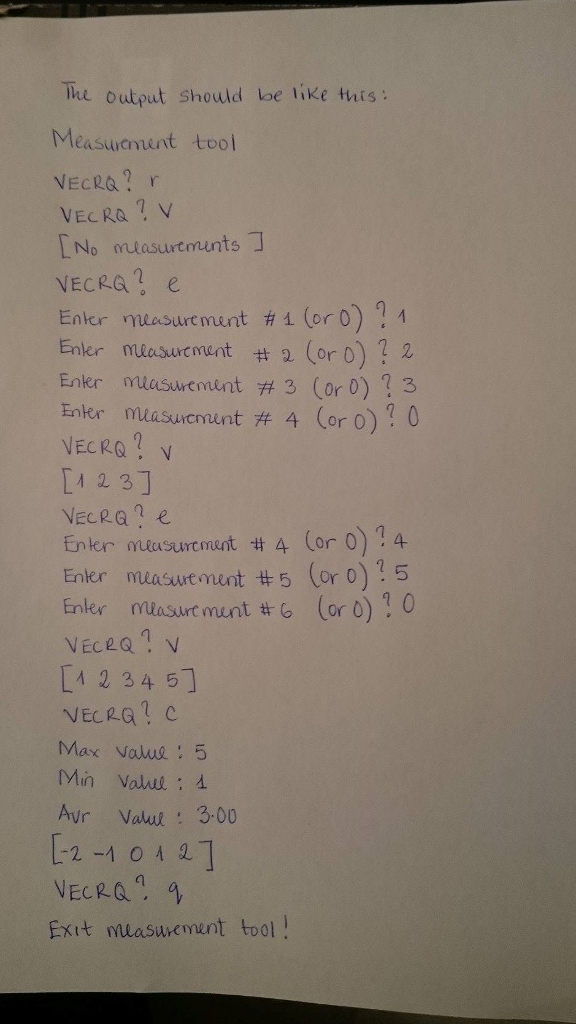 The output should be like this:
Measurement tool
VECRQ? r
VECRQ? V
[No measurements]
VECRQ? e
Enter measurement #1 (or 0)? 1
Enter measurement #2 (or 0)? 2
Enter measurement #3 (or 0)? 3
Enter measurement #4 (or 0)? 0
VECRQ? v
[1 2 3]
VECRQ? e
Enter measurement #4 (or 0)? 4
Enter measurement #5 (or 0)? 5
Enter measurement #6 (or 0)? 0
VECRQ? V
[1 2 3 4 5]
VECRQ? C
Max value: 5
Min Value: 1
Avr Value: 3.00
[-2 -1 0 1 2]
VECRQ? q
Exit measurement tool!